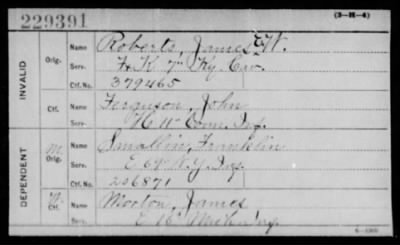 229391
(3-H-4)
INVALID
Orig. Name Roberts, James W.
Serv. K 7" Ky Cav.
Ctf.No. 379465
Ctf. Name Ferguson, John
Serv. H 11" Conn. Inf.
DEPENDENT
M. Orig. Name Smallin, Franklin
Serv. E 69" N.Y. Inf.
Ctf.No. 206871
Ctf. Name Morton, James
Serv. E 16" Mich. Inf.